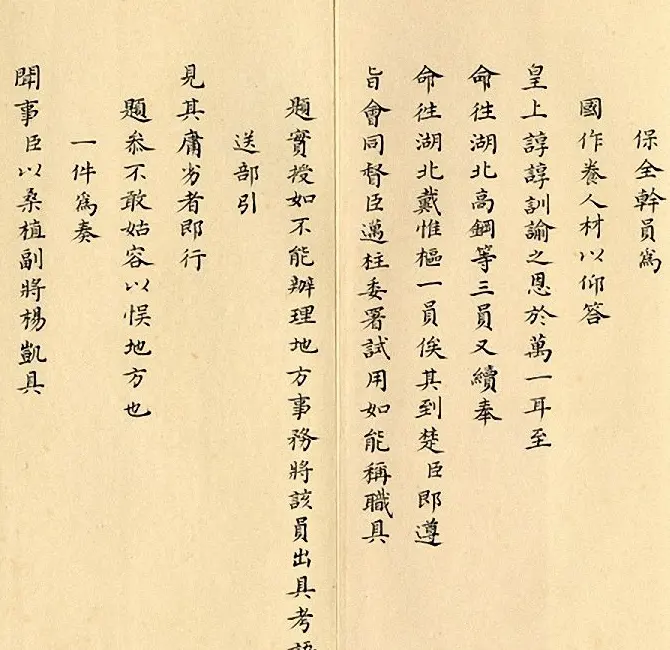 保全幹員爲
國作養人材以仰答
皇上諄諄訓諭之恩於萬一耳至
命往湖北高鋼等三員又續奉
命往湖北戴惟樞一員俟其到楚臣即遵
旨會同督臣邁柱委署試用如能稱職具
題實授如不能辦理地方事務將該員出具考語
送部引
見其庸劣者即行
題叅不敢姑容以悞地方也
一件爲奏
聞事臣以桑植副將楊凱具